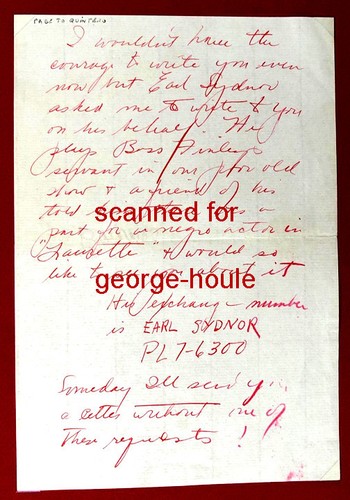 PAGE TO QUINTERO
I wouldn't have the
courage to write you even
now but Earl Sydnor
asked me to write to you
on his behalf. He
plays Boss Finley's
servant in our poor old
show & a friend of his
told
part for a negro actor in
"Laurette" & would so
like to see you about it
scanned for
george-houle
His exchange number
is EARL SYDNOR
PL7-6300
Someday I'll send you
a letter without one of
these requests!